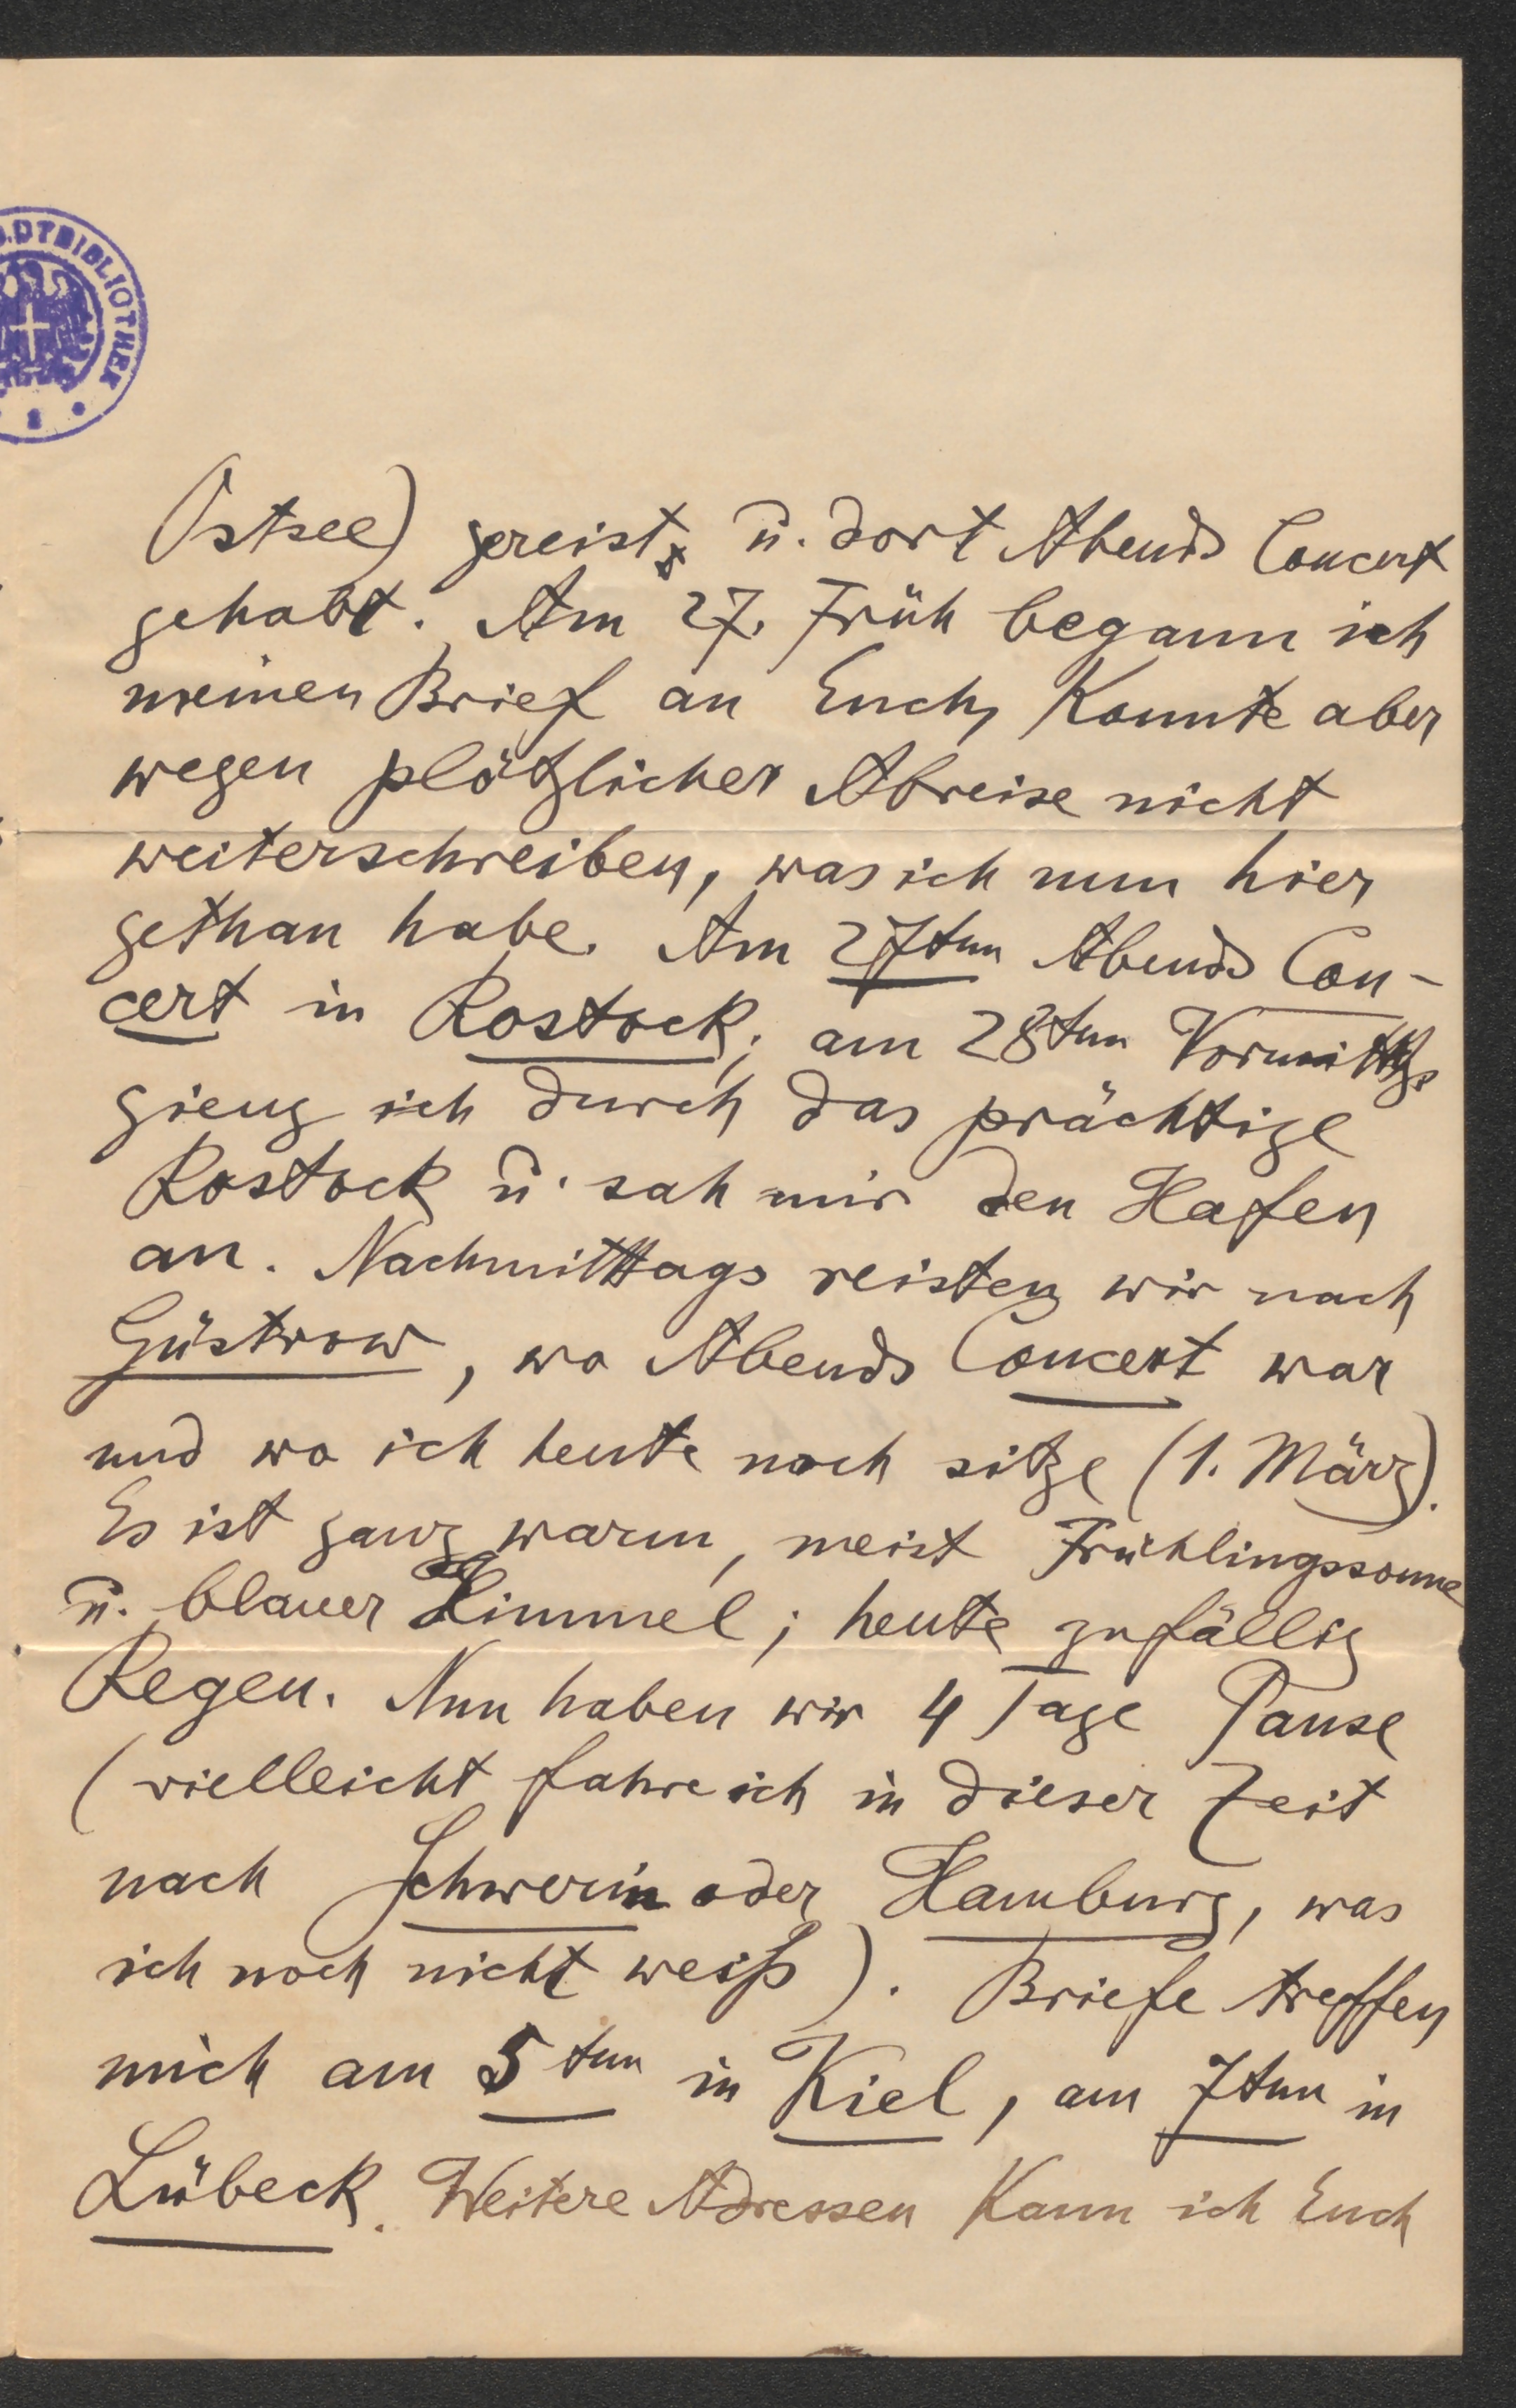 DTBIBLIOTHEK
Ostsee) gereist, ü. dort Abends Concert
gehabt. Am 27. Früh begann ich
meinen Brief an Euch, konnte aber
wegen plötzlicher Abreise nicht
weiterschreiben, was ich nun hier
gethan habe. Am 27ten Abends Con-
cert in Rostock; am 28ten Vormittgs
gieng ich durch das prächtige
Rostock ü. sah mir den Hafen
an. Nachmittags reisten wir nach
Güstrow, wo Abends Concert war
und wo ich heute noch sitze (1. März).
Es ist ganz warm, meist Frühlingssonne
ü. blauer Himmel; heute zufällig
Regen. Nun haben wir 4 Tage Pause
(vielleicht fahre ich in dieser Zeit
nach Schwerin oder Hamburg, was
ich noch nicht weiß). Briefe treffen
mich am 5ten in Kiel, am 7ten in
Lübeck. Weitere Adressen kann ich Euch